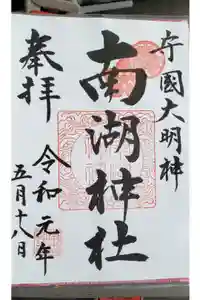 守國大明神
南湖神社
奉拝
令和元年
五月十八日